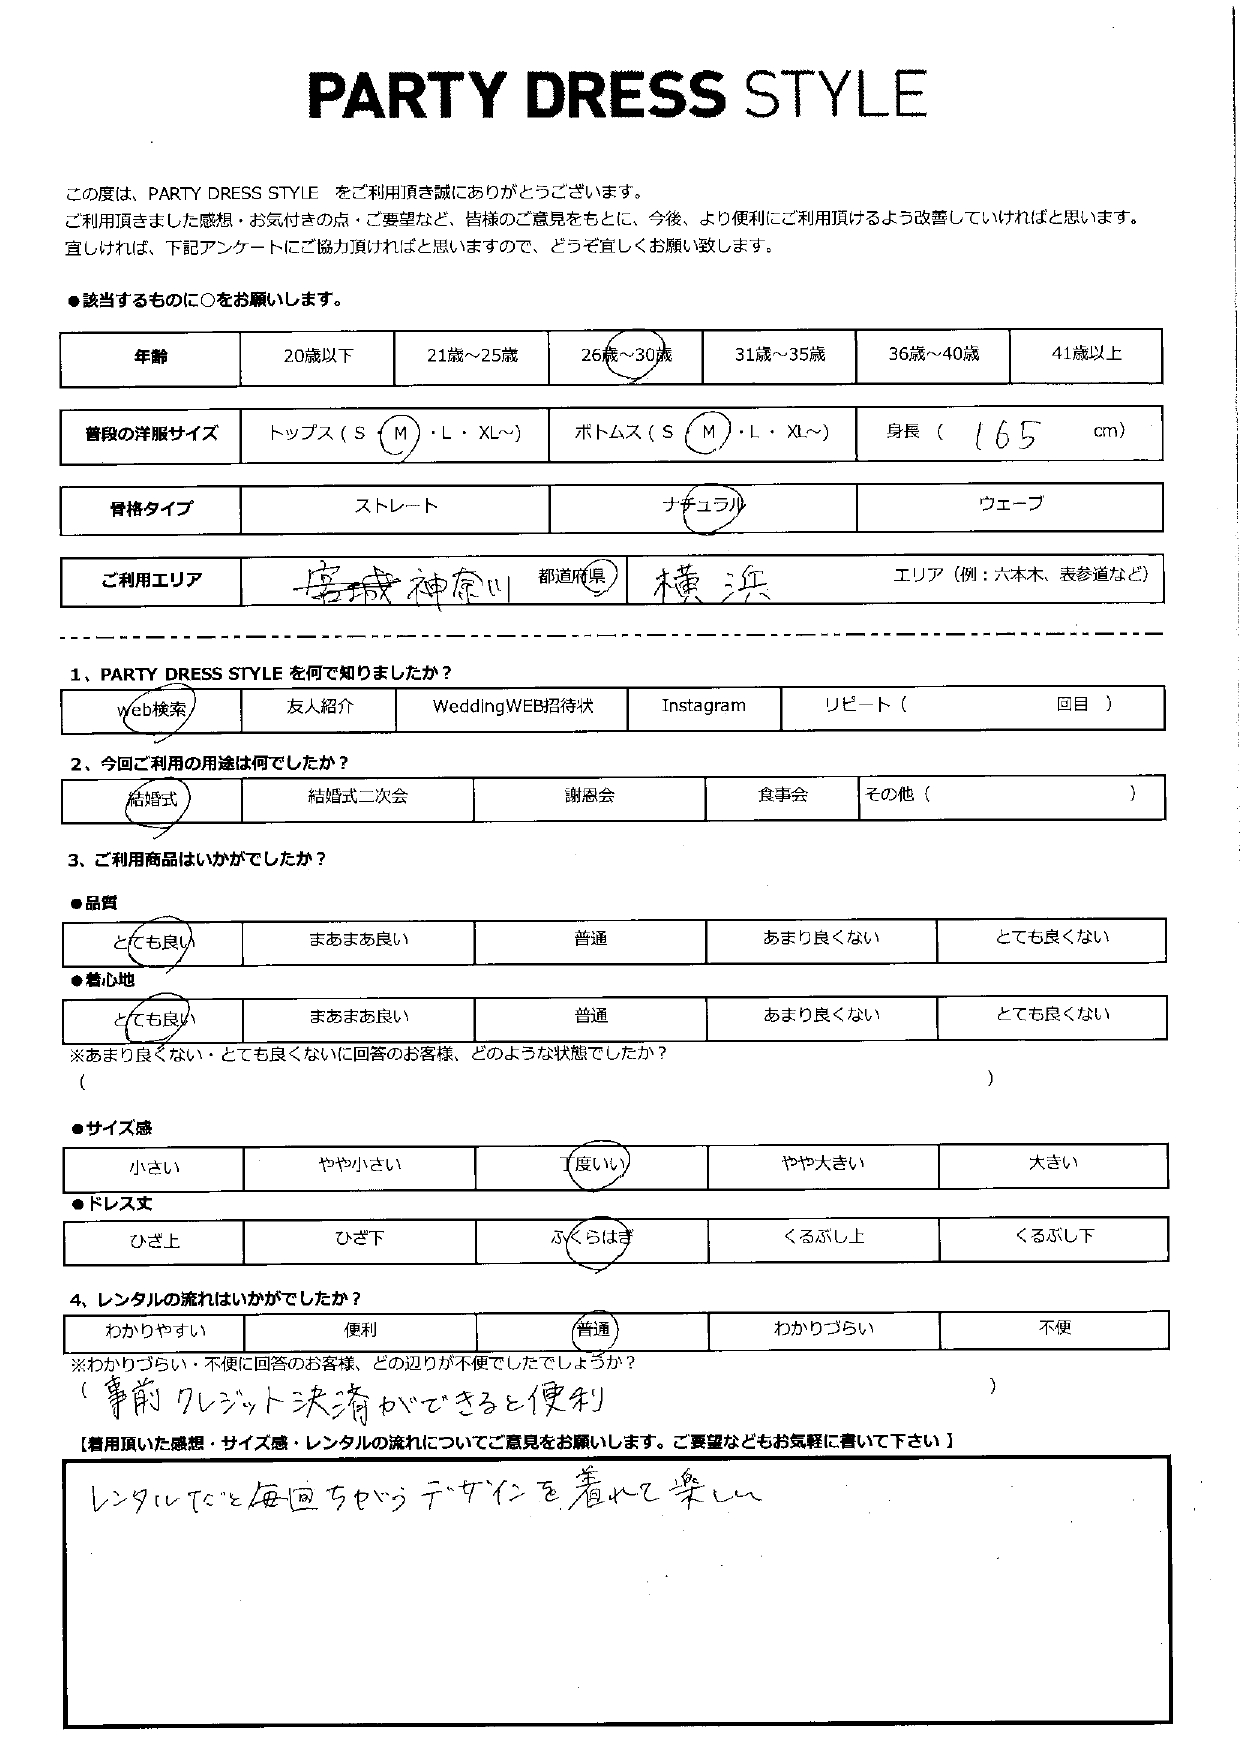 PARTY DRESS STYLE
この度は、PARTY DRESS STYLE　をご利用頂き誠にありがとうございます。
ご利用頂きました感想・お気付きの点・ご要望など、皆様のご意見をもとに、今後、より便利にご利用頂けるよう改善していければと思います。
宜しければ、下記アンケートにご協力頂ければと思いますので、どうぞ宜しくお願い致します。
●該当するものに○をお願いします。
年齢 20歳以下 21歳～25歳 26歳～30歳 31歳～35歳 36歳～40歳 41歳以上
普段の洋服サイズ トップス ( S ・ M ・ L ・ XL～) ボトムス ( S ・ M ・ L ・ XL～) 身長 ( 165 cm)
骨格タイプ ストレート ナチュラル ウェーブ
ご利用エリア 宮城 神奈川 都道府県 横浜 エリア（例：六本木、表参道など）
1、PARTY DRESS STYLE を何で知りましたか？
web検索 友人紹介 WeddingWEB招待状 Instagram リピート（ 回目 ）
2、今回ご利用の用途は何でしたか？
結婚式 結婚式二次会 謝恩会 食事会 その他（ ）
3、ご利用商品はいかがでしたか？
●品質
とても良い まあまあ良い 普通 あまり良くない とても良くない
●着心地
とても良い まあまあ良い 普通 あまり良くない とても良くない
※あまり良くない・とても良くないに回答のお客様、どのような状態でしたか？
（ ）
●サイズ感
小さい やや小さい 丁度いい やや大きい 大きい
●ドレス丈
ひざ上 ひざ下 ふくらはぎ くるぶし上 くるぶし下
4、レンタルの流れはいかがでしたか？
わかりやすい 便利 普通 わかりづらい 不便
※わかりづらい・不便に回答のお客様、どの辺りが不便でしたでしょうか？
（ 事前クレジット決済ができると便利 ）
【着用頂いた感想・サイズ感・レンタルの流れについてご意見をお願いします。ご要望などもお気軽に書いて下さい 】
レンタルだと毎回ちがうデザインを着れて楽しい